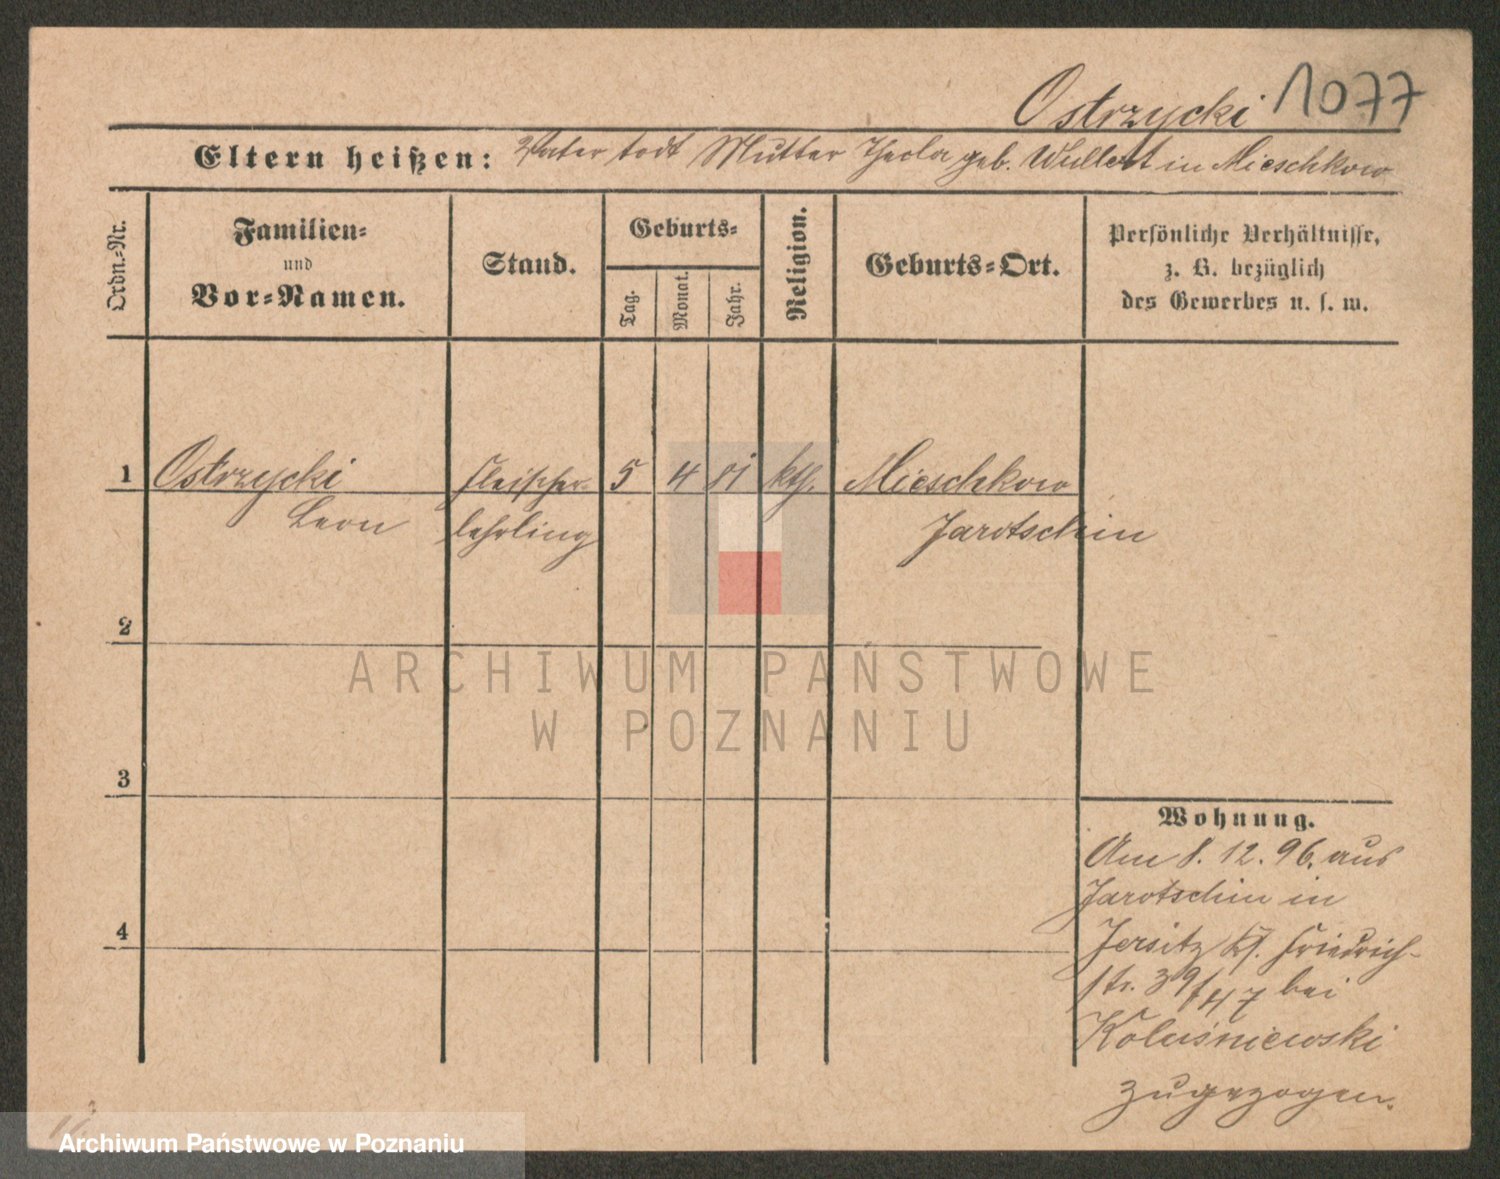 Ostrzycki 1077
Eltern heißen: Vater todt Mutter Thecla geb. Wullert in Mieschkow
Ordn.-Nr.
Familien-
und
Vor-Namen.
Stand.
Geburts-
Tag.
Monat.
Jahr.
Religion.
Geburts-Ort.
Persönliche Verhältnisse,
z. B. bezüglich
des Gewerbes u. s. w.
1 Ostrzycki Fleischer- 5 4 81 kth. Mieschkow
Leon lehrling Jarotschin
2
3
4
Wohnung.
Am 8. 12. 96. aus
Jarotschin in
Jersitz Kf. Friedrich-
str. 39/47 bei
Koluśniewski
zugezogen.
ARCHIWUM PAŃSTWOWE
W POZNANIU
Archiwum Państwowe w Poznaniu